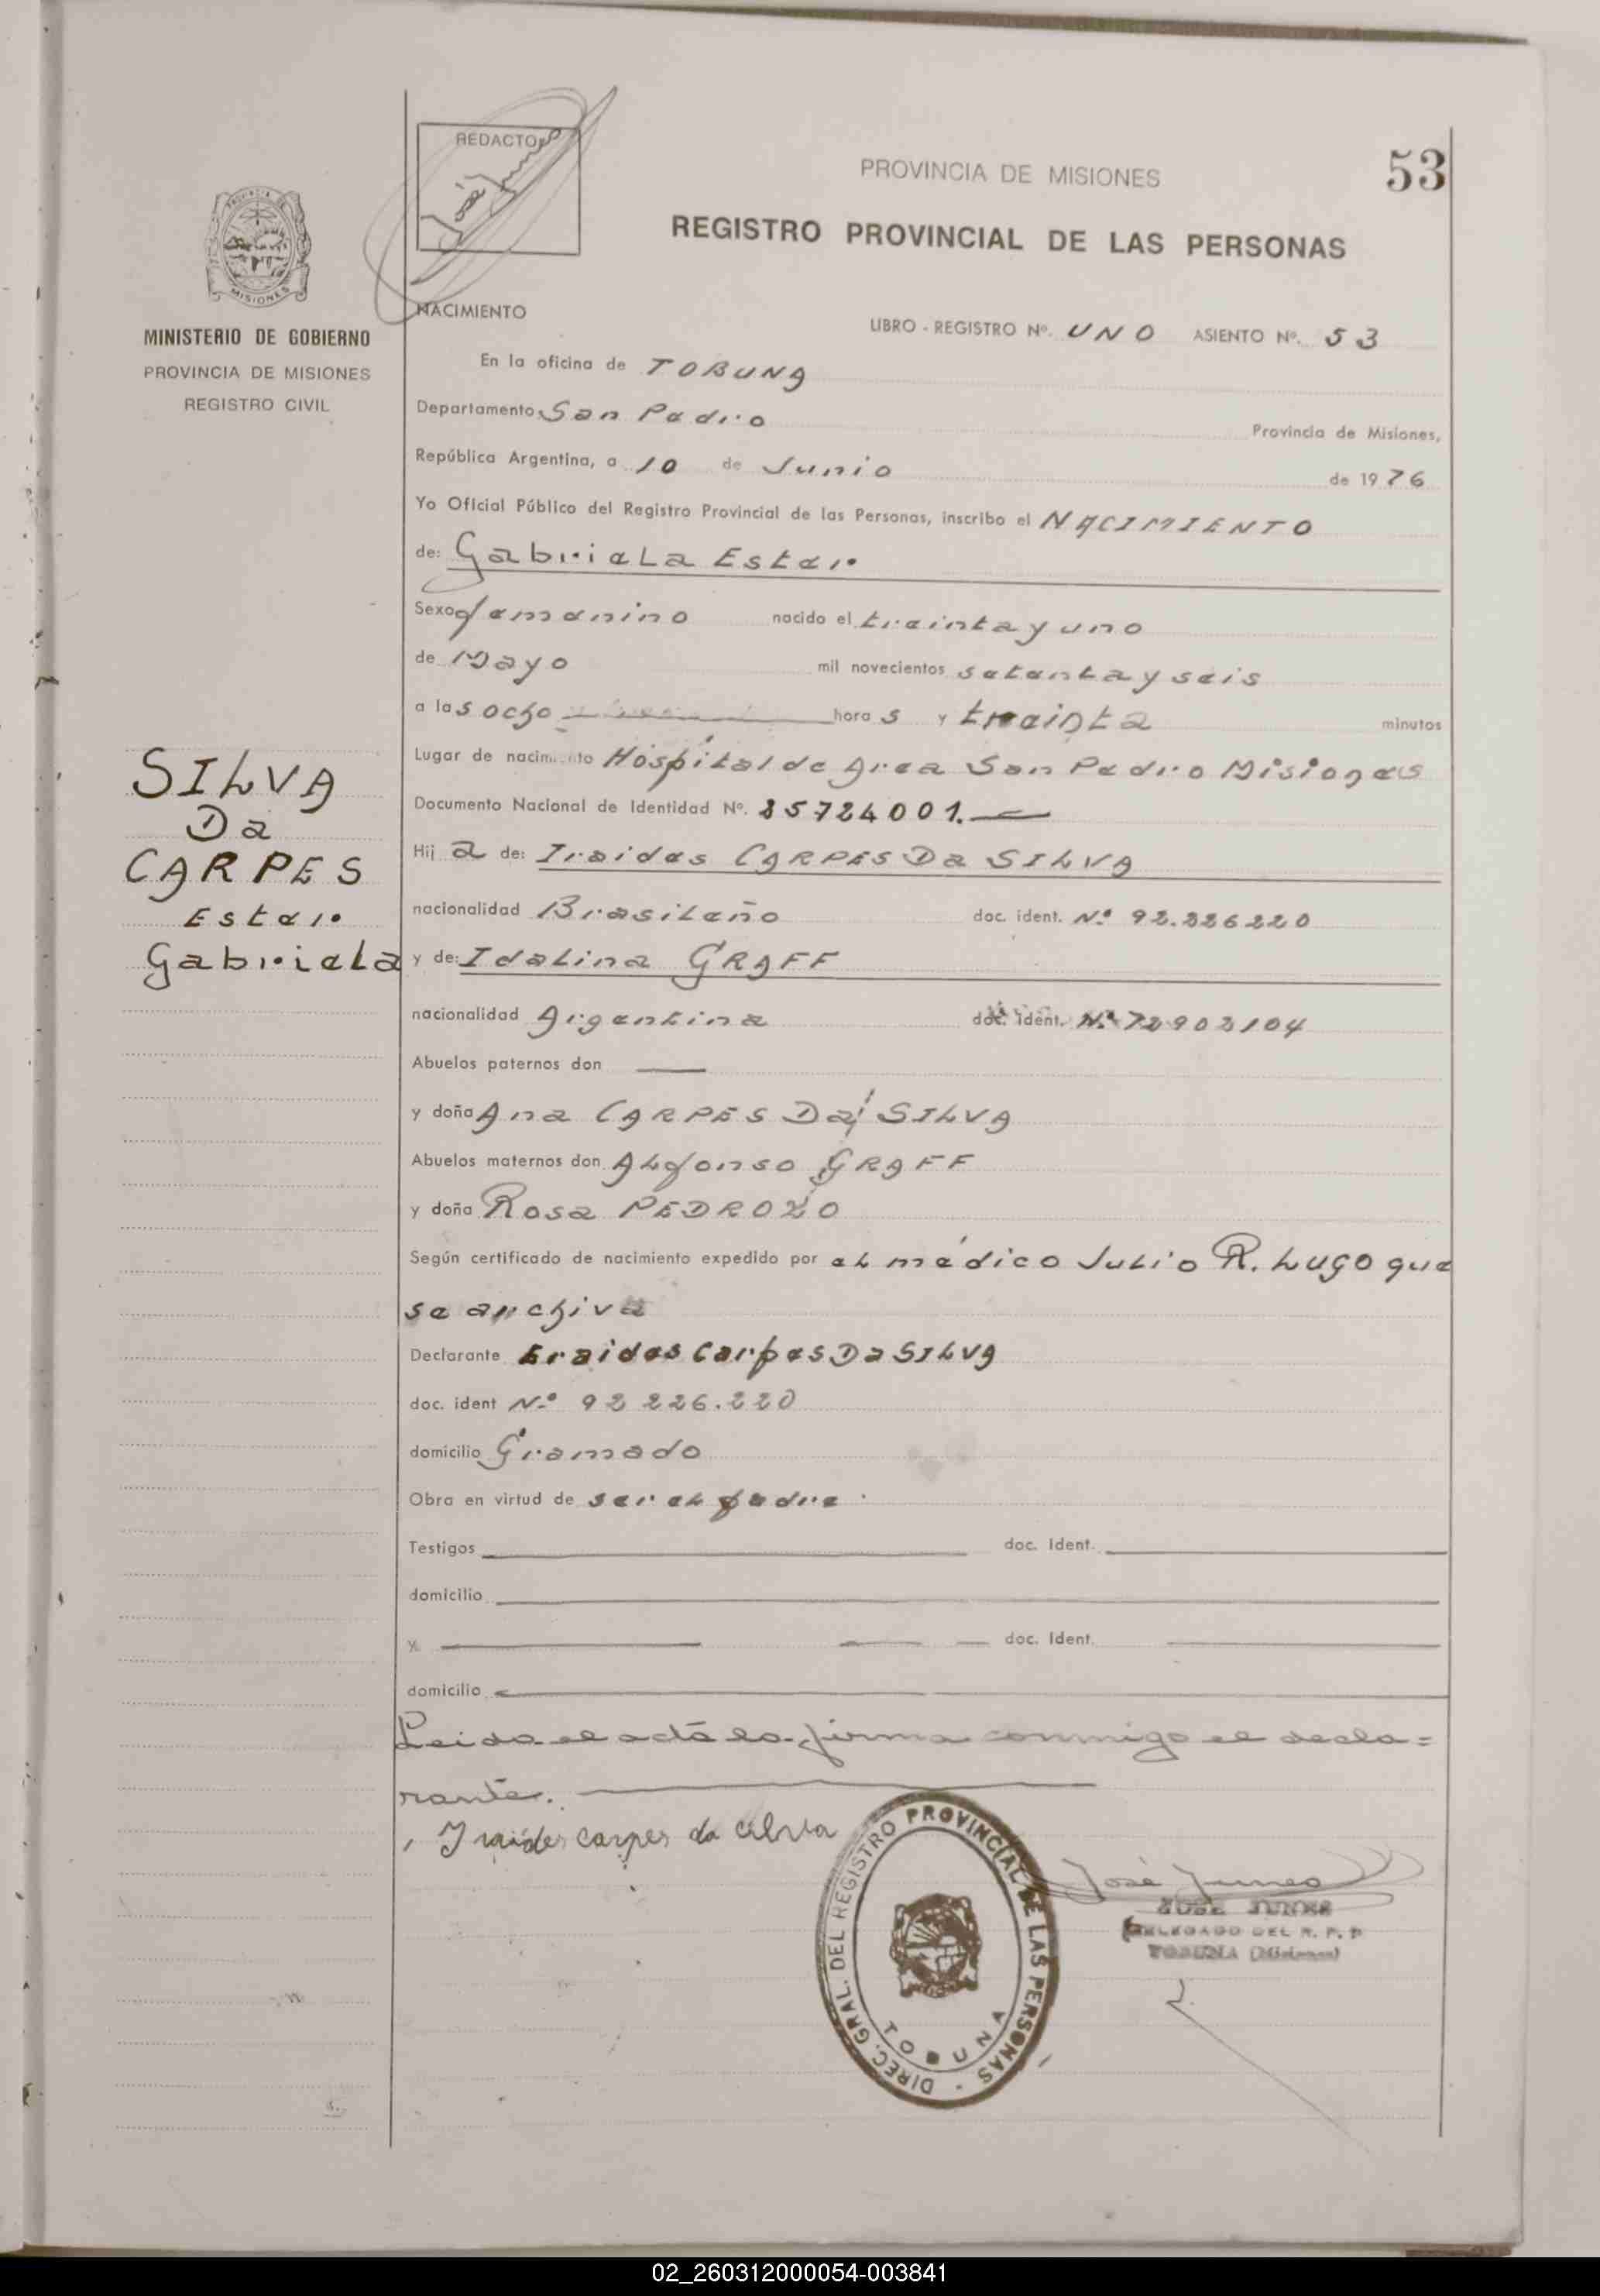 REDACTOR
PROVINCIA DE MISIONES
53
REGISTRO PROVINCIAL DE LAS PERSONAS
MISIONES
MINISTERIO DE GOBIERNO
PROVINCIA DE MISIONES
REGISTRO CIVIL
NACIMIENTO
LIBRO - REGISTRO Nº. UNO ASIENTO Nº. 53
En la oficina de TOBUNA
Departamento San Pedro Provincia de Misiones,
República Argentina, a 10 de Junio de 1976
Yo Oficial Público del Registro Provincial de las Personas, inscribo el NACIMIENTO
de: Gabriela Ester
Sexo femenino nacido el treinta y uno
de Mayo mil novecientos setenta y seis
a las ocho horas y treinta minutos
Lugar de nacimiento Hospital de Area San Pedro Misiones
Documento Nacional de Identidad Nº. 25724001.
Hija de: Iraides CARPES Da SILVA
nacionalidad Brasileño doc. ident. Nº 92.226220
y de: Idalina GRAFF
nacionalidad Argentina doc. ident. Nº 72902104
Abuelos paternos don
y doña Ana CARPES Da SILVA
Abuelos maternos don Alfonso GRAFF
y doña Rosa PEDROZO
Según certificado de nacimiento expedido por el médico Julio R. Lugo que
se archiva
Declarante Eraides Carpes Da SILVA
doc. ident Nº 92 226.220
domicilio Gramado
Obra en virtud de ser el padre
Testigos doc. Ident.
domicilio
y. doc. Ident.
domicilio
Leida el acta la firma conmigo el decla=
rante.
Iraides carpes da silva
SILVA
Da
CARPES
Ester
Gabriela
DIREC. GRAL. DEL REGISTRO PROVINCIAL DE LAS PERSONAS -
TOBUNA
José Junes
JOSE JUNES
DELEGADO DEL R. P. P
TOBUNA (Misiones)
02_260312000054-003841